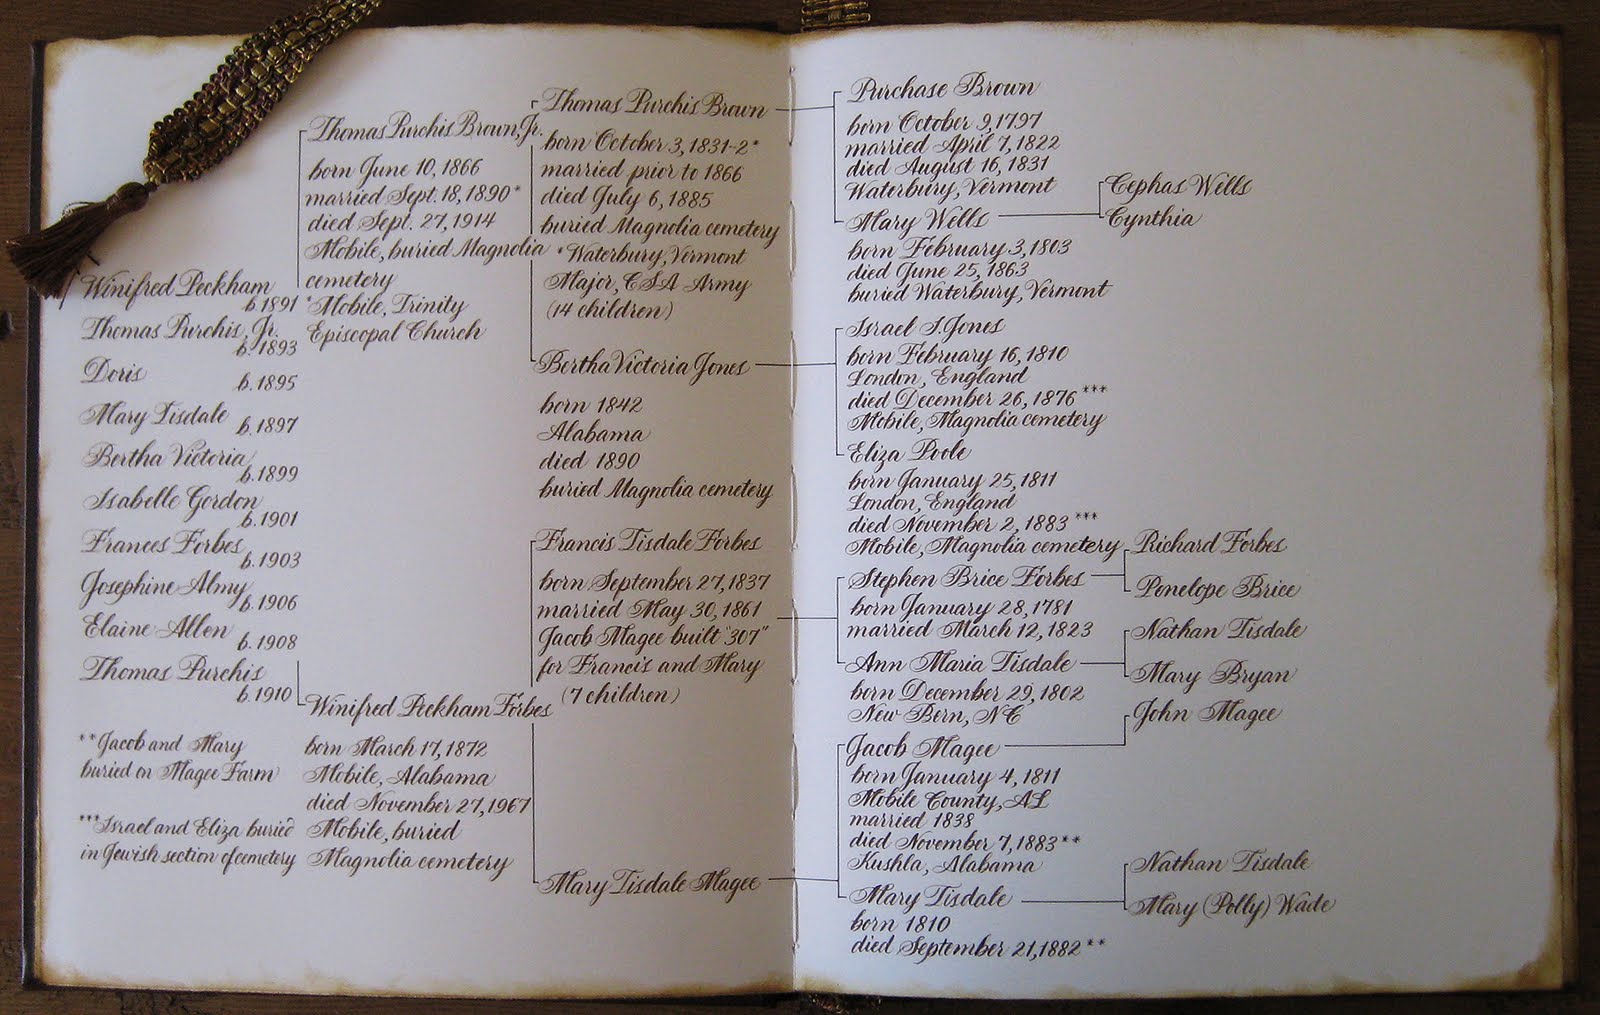 Winifred Peckham
b. 1891
Thomas Purchis, Jr.
b. 1893
Doris
b. 1895
Mary Tisdale
b. 1897
Bertha Victoria
b. 1899
Isabelle Gordon
b. 1901
Frances Forbes
b. 1903
Josephine Almy
b. 1906
Elaine Allen
b. 1908
Thomas Purchis
b. 1910
**Jacob and Mary
buried on Magee Farm
***Israel and Eliza buried
in Jewish section of cemetery
Thomas Purchis Brown, Jr.
born June 10, 1866
married Sept. 18, 1890*
died Sept. 27, 1914
Mobile, buried Magnolia
cemetery
*Mobile, Trinity
Episcopal Church
Winifred Peckham Forbes
born March 17, 1872
Mobile, Alabama
died November 27, 1967
Mobile, buried
Magnolia cemetery
Thomas Purchis Brown
born October 3, 1831-2*
married prior to 1866
died July 6, 1885
buried Magnolia cemetery
*Waterbury, Vermont
Major, CSA Army
(14 children)
Bertha Victoria Jones
born 1842
Alabama
died 1890
buried Magnolia cemetery
Francis Tisdale Forbes
born September 27, 1837
married May 30, 1861
Jacob Magee built "307"
for Francis and Mary
(7 children)
Mary Tisdale Magee
Purchase Brown
born October 9, 1797
married April 7, 1822
died August 16, 1831
Waterbury, Vermont
Mary Wells
born February 3, 1803
died June 25, 1863
buried Waterbury, Vermont
Israel I. Jones
born February 16, 1810
London, England
died December 26, 1876***
Mobile, Magnolia cemetery
Eliza Poole
born January 25, 1811
London, England
died November 2, 1883***
Mobile, Magnolia cemetery
Stephen Brice Forbes
born January 28, 1781
married March 12, 1823
Ann Maria Tisdale
born December 29, 1802
New Bern, NC
Jacob Magee
born January 4, 1811
Mobile County, AL
married 1838
died November 7, 1883**
Kushla, Alabama
Mary Tisdale
born 1810
died September 21, 1882**
Cephas Wells
Cynthia
Richard Forbes
Penelope Brice
Nathan Tisdale
Mary Bryan
John Magee
Nathan Tisdale
Mary (Polly) Wade